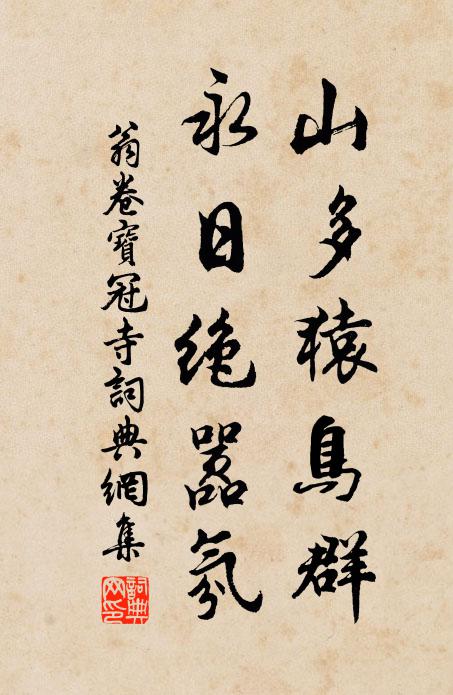 山多猿鳥群
永日絶嚣氛
翁卷寶冠寺詞典網集
詞典网印